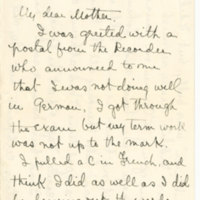 My dear Mother,
I was greeted with a
postal from the Recorder
who announced to me
that I was not doing well
in German. I got through
the exam but my term work
was not up to the mark.
I pulled a C in French, and
think I did as well as I did